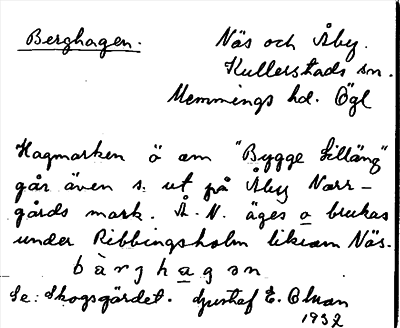 Berghagen.
Näs och Åby.
Kullerstads sn.
Memmings hd. Ögl
Hagmarken ö om "Bygge Lilläng"
går även s. ut på Åby Norr-
gårds mark. Å. N. äges o brukas
under Ribbingsholm liksom Näs.
bàrjhagən
Se: Skogsgärdet. Gustaf E. Olsson
1932